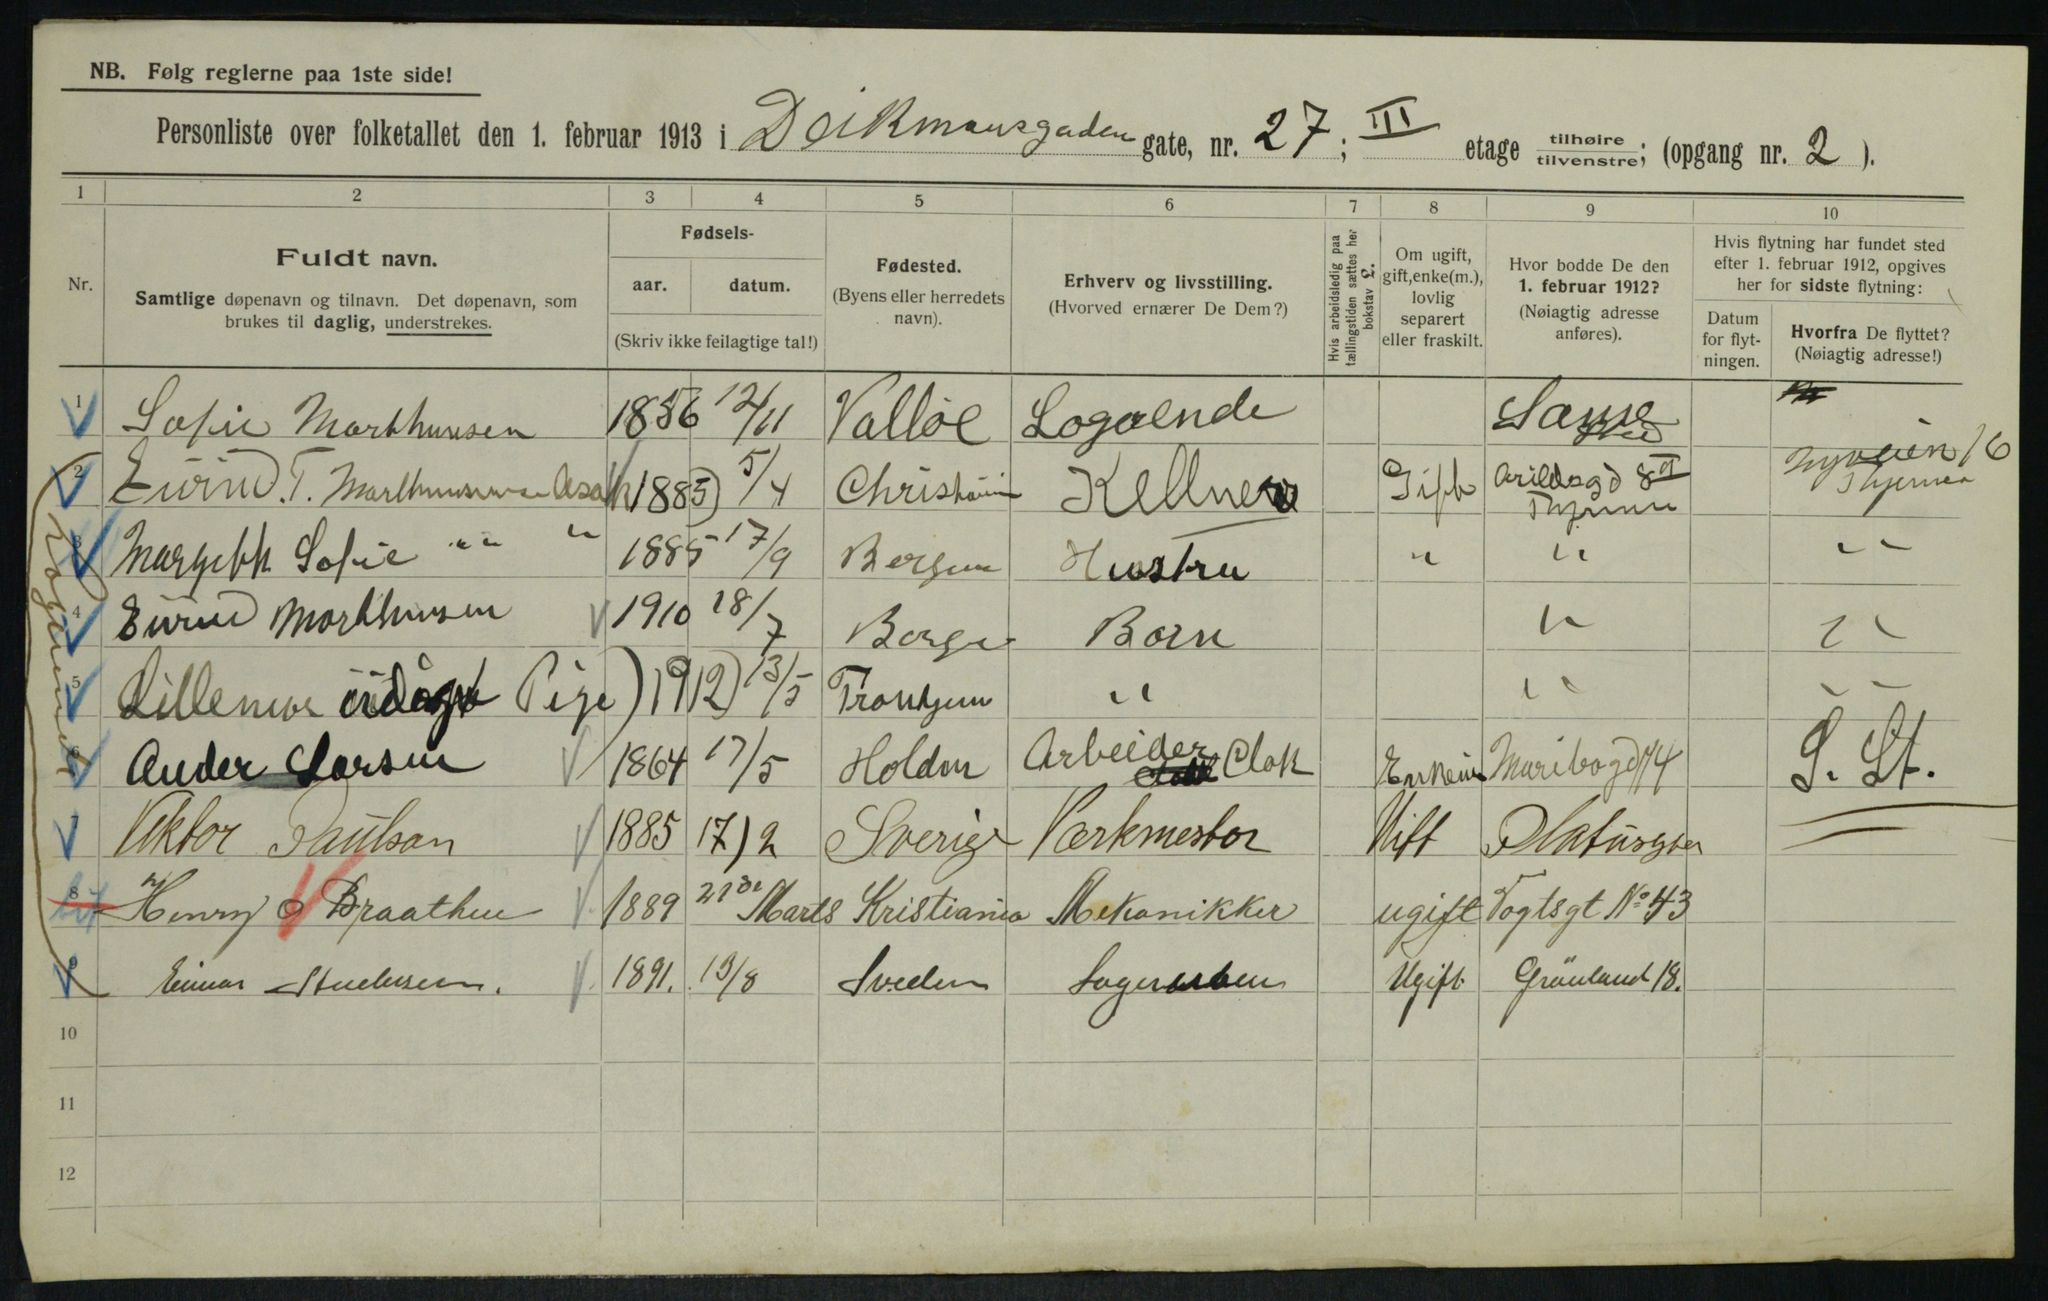 NB. Følg reglerne paa 1ste side!
Personliste over folketallet den 1. februar 1913 i Deikmansgaden gate, nr. 27; III etage tilhøire tilvenstre; (opgang nr. 2).
1 2 3 4 5 6 7 8 9 10
Nr.
Fuldt navn.
Samtlige døpenavn og tilnavn. Det døpenavn, som
brukes til daglig, understrekes.
Fødsels-
aar. datum.
(Skriv ikke feilagtige tal!)
Fødested.
(Byens eller herredets
navn).
Erhverv og livsstilling.
(Hvorved ernærer De Dem?)
Hvis arbeidsledig paa
tællingstiden sættes her
bokstav L.
Om ugift,
gift, enke(m.),
lovlig
separert
eller fraskilt.
Hvor bodde De den
1. februar 1912?
(Nøiagtig adresse
anføres).
Hvis flytning har fundet sted
efter 1. februar 1912, opgives
her for sidste flytning:
Datum
for flyt-
ningen.
Hvorfra De flyttet?
(Nøiagtig adresse!)
1 Sofie Marthinsen 1856 12/11 Valløe Logerende Samme
2 T. Marthinsen 1885) 5/4 Kellner Gift 16
3 Sofie " " " 1885 17/9 Bergen Hustru " " " "
4 Marthinsen 1910 18/7 Barn " " "
5 Lillemor Pige) 1912) 13/5 " " " "
6 Ander Larsen 1864 17/5 Holden Arbeider Maribogd 74 S. St.
7 Viktor Paulsan 1885 17)2 Sverige Værkmester
8 Henry Braathen 1889 21de Marts Kristiania Mekanikker ugift Vogtsgt No 43
9 Einar 1891. 13/8 Sveden Ugift Grönland 18.
10
11
12